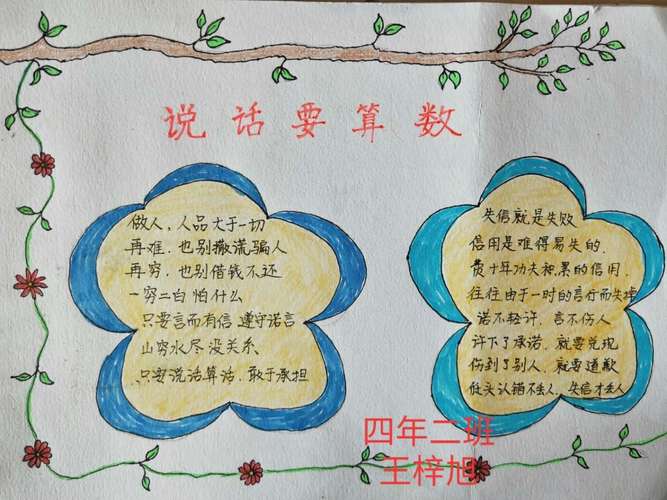 说话要算数
做人，人品大于一切
再难．也别撒谎骗人
再穷．也别借钱不还
一穷二白 怕什么
只要言而有信 遵守诺言
山穷水尽没关系
只要说话算话．敢于承担
失信就是失败
信用是难得易失的．
费十年功夫积累的信用．
往往由于一时的言行而失掉
诺不轻许．言不伤人
许下了承诺．就要兑现
伤到了别人．就要道歉
低头认错不丢人．失信才丢人
四年二班
王梓旭